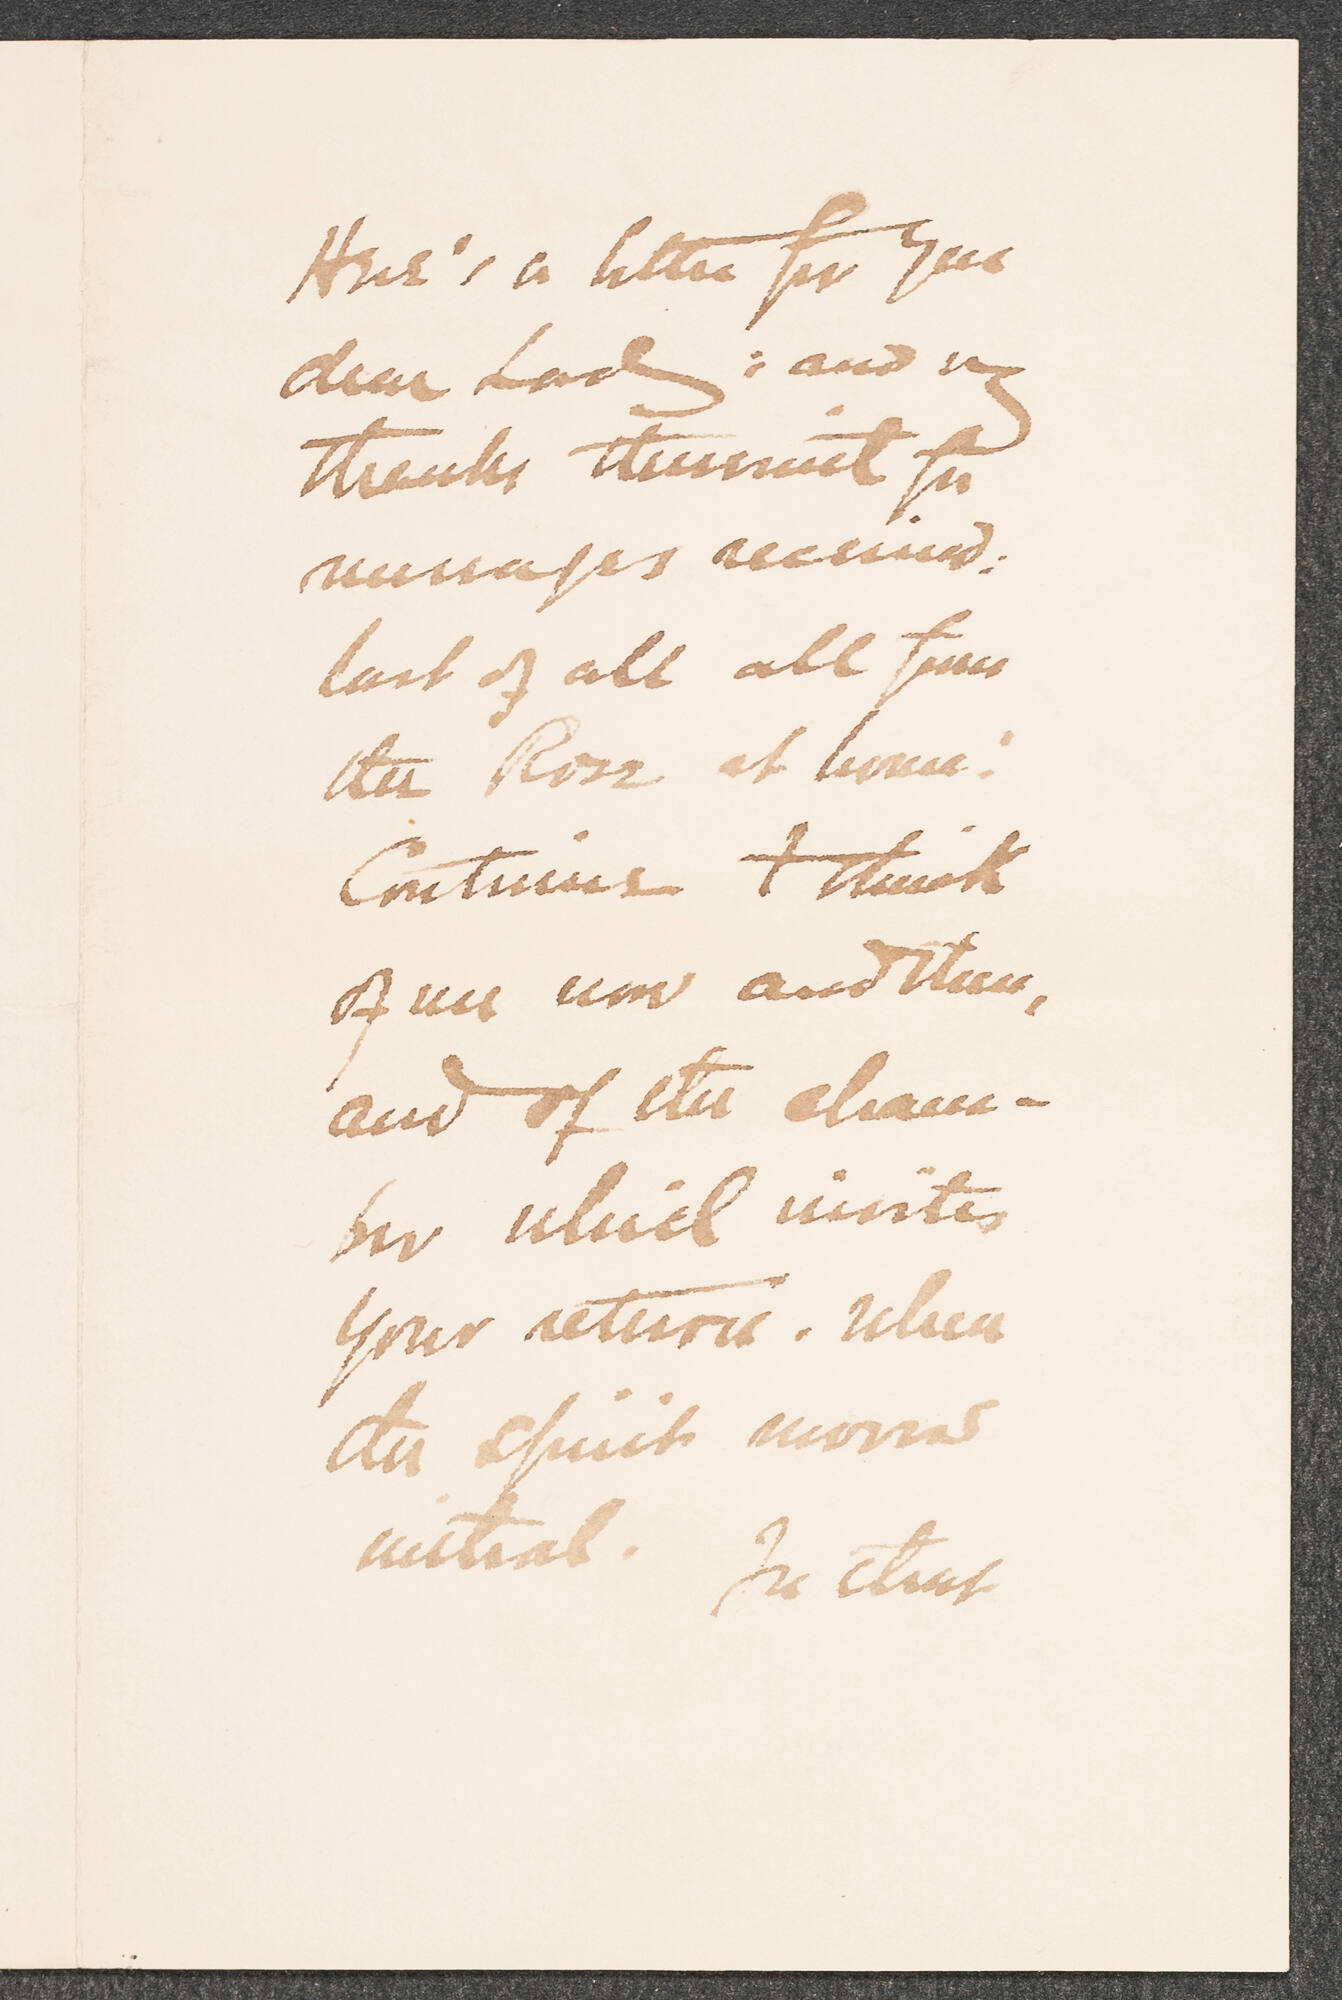 Here's a letter for you
dear Lady: and my
thanks therewith for
messages received.
last of all all from
the Rose at home:
Continue to think
of me now and then,
and of the cham-
ber which invites
your return. when
the spirit moves
withal. In that